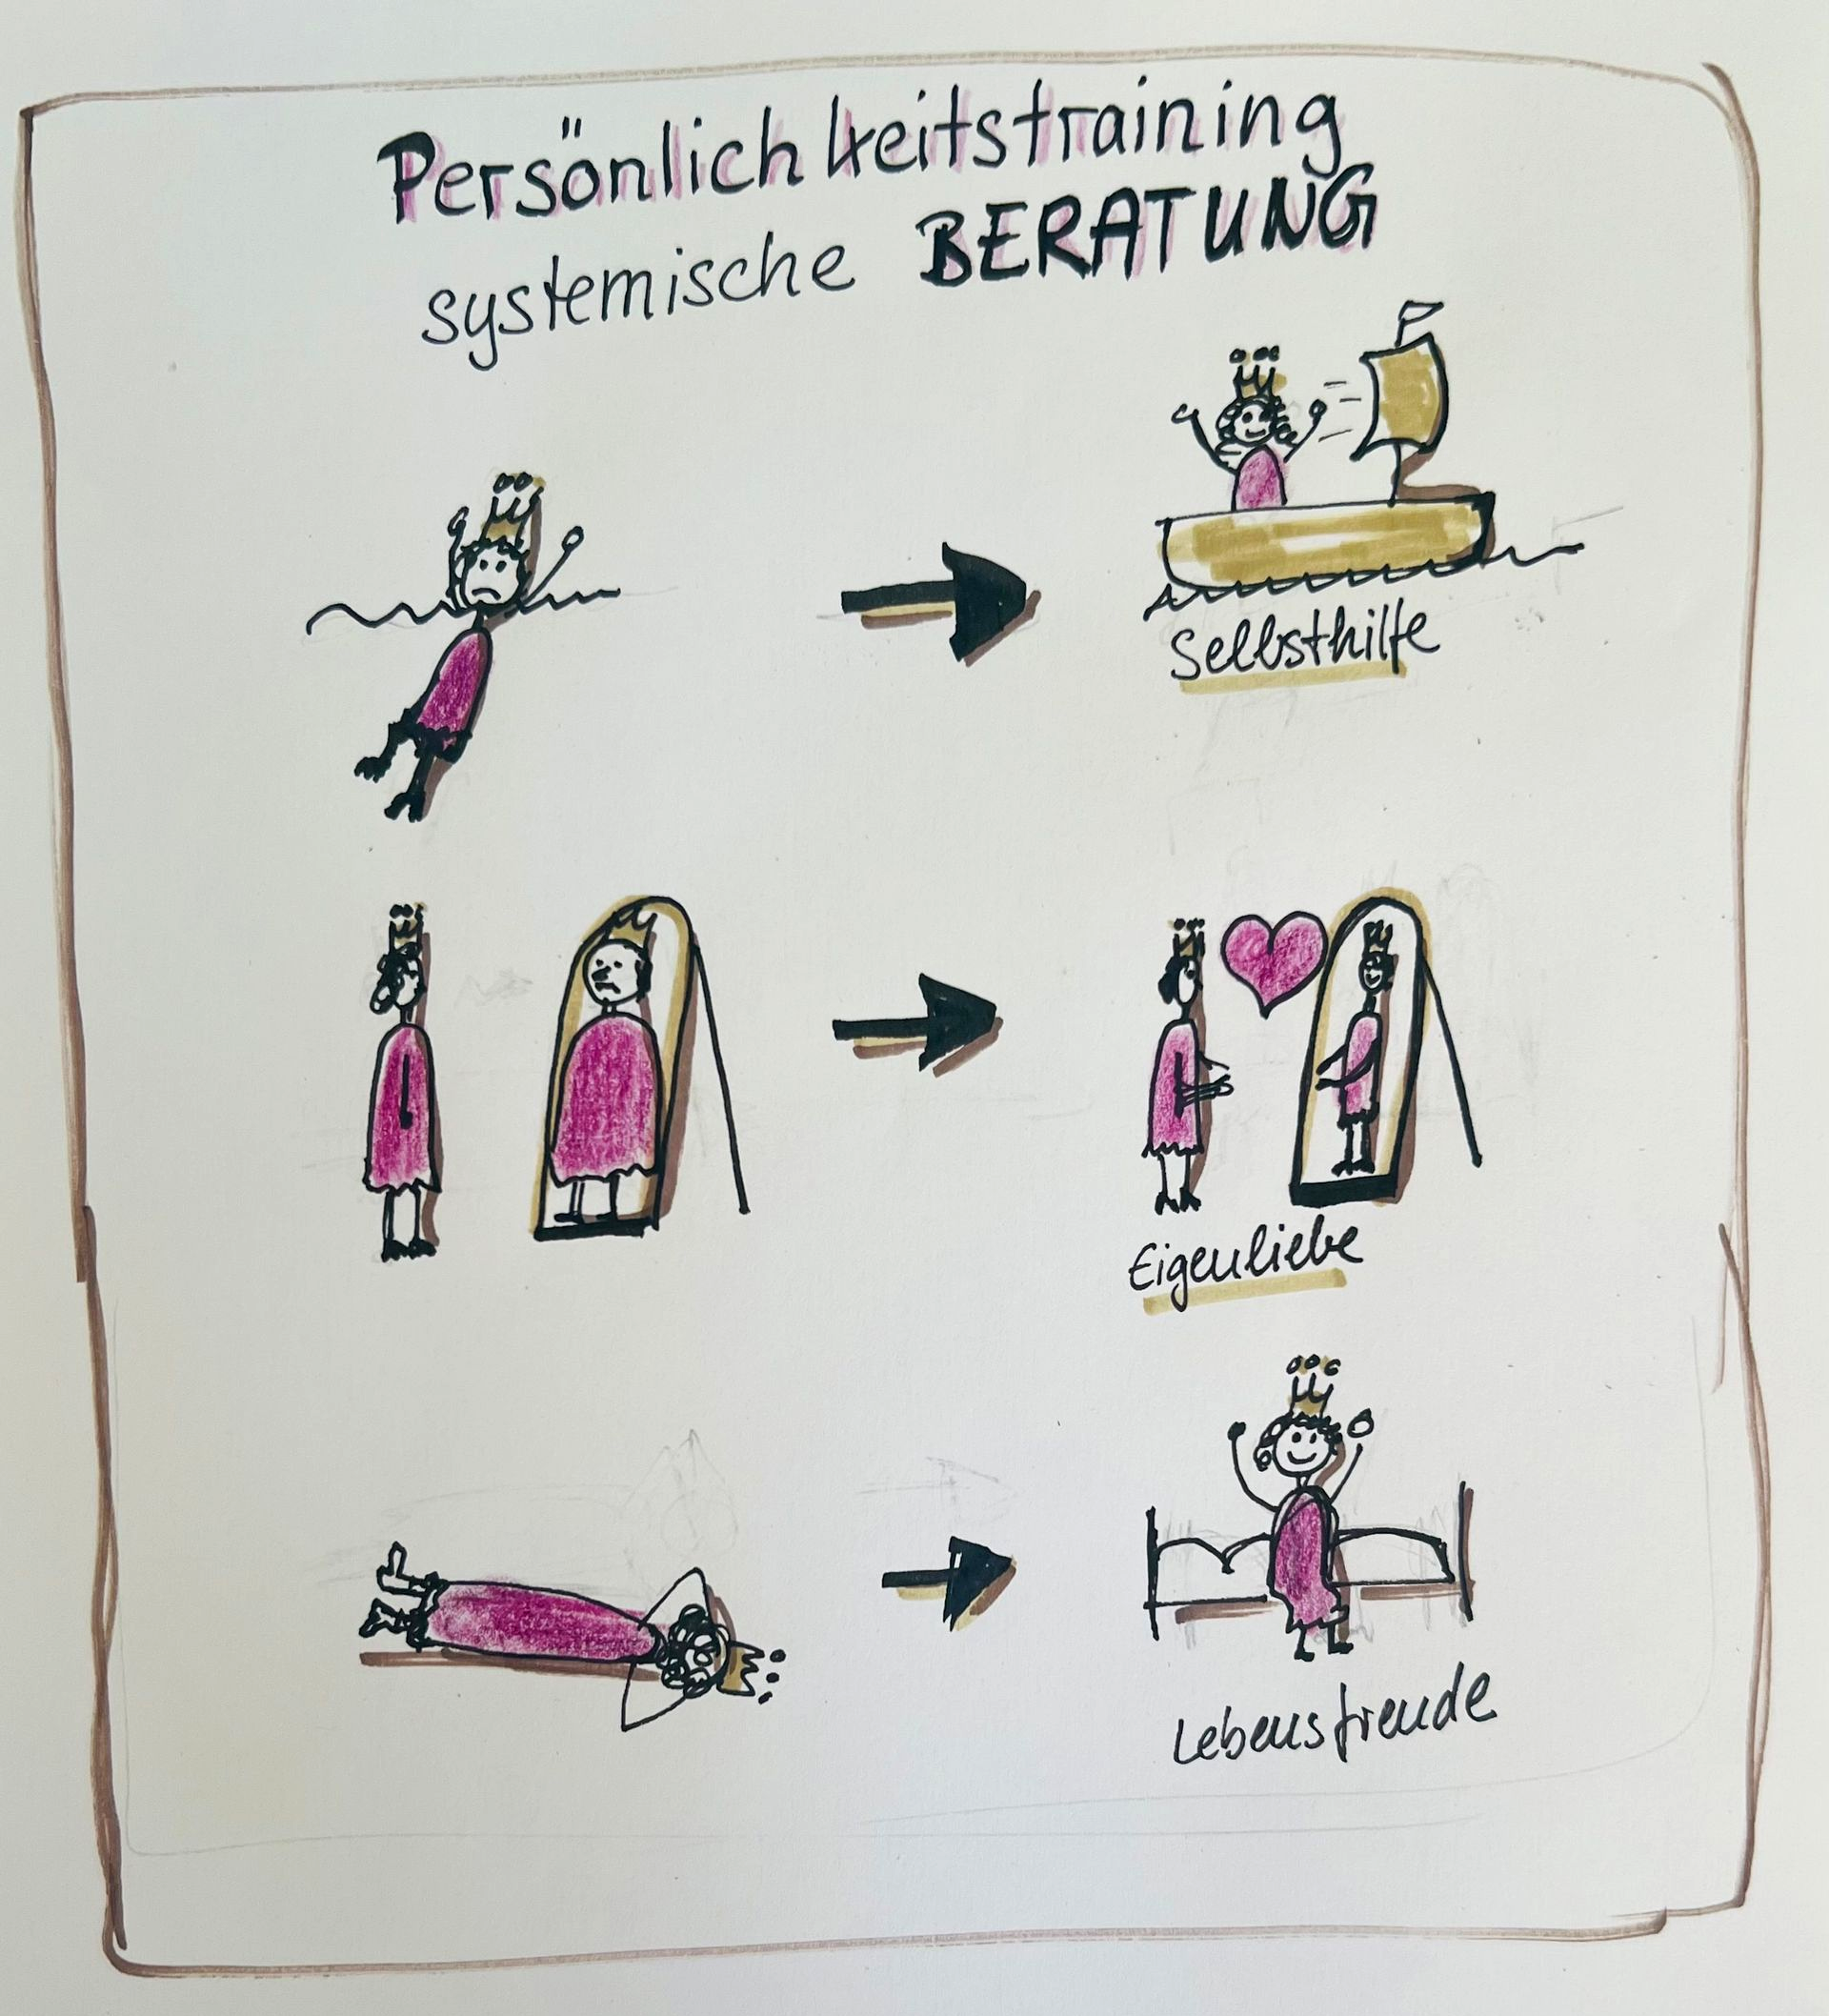 Persönlichkeitstraining
systemische BERATUNG
Selbsthilfe
Eigenliebe
Lebensfreude